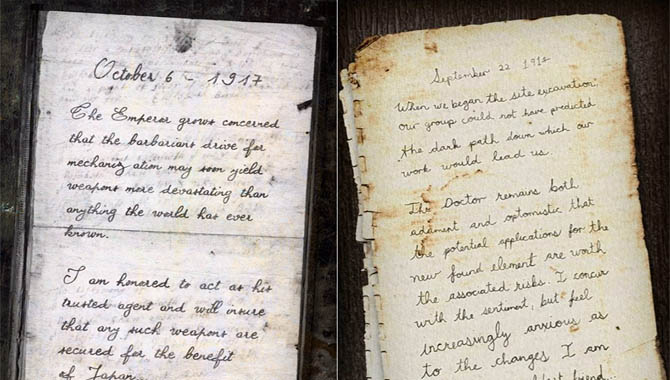 October 6 - 1917
The Emperor grows concerned
that the barbarians drive for
mechanization may soon yield
weapons more devastating than
anything the world has ever
known.
I am honored to act as his
trusted agent and will insure
that any such weapons are
secured for the benefit
of Japan.
September 22 191
When we began the site excavation,
our group could not have predicted
the dark path down which our
work would lead us.
The Doctor remains both
adamant and optomistic that
the potential applications for the
new found element are worth
the associated risks. I concur
with the sentiment, but feel
increasingly anxious as
to the changes I am
oldest friend.